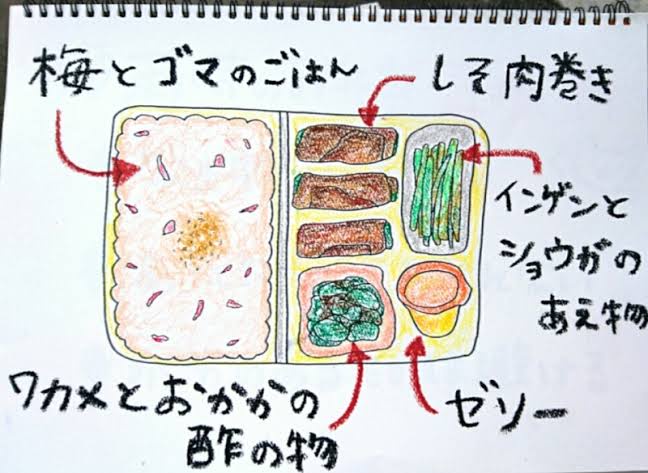 梅とゴマのごはん
しそ肉巻き
インゲンと
ショウガの
あえ物
ワカメとおかかの
酢の物
ゼリー